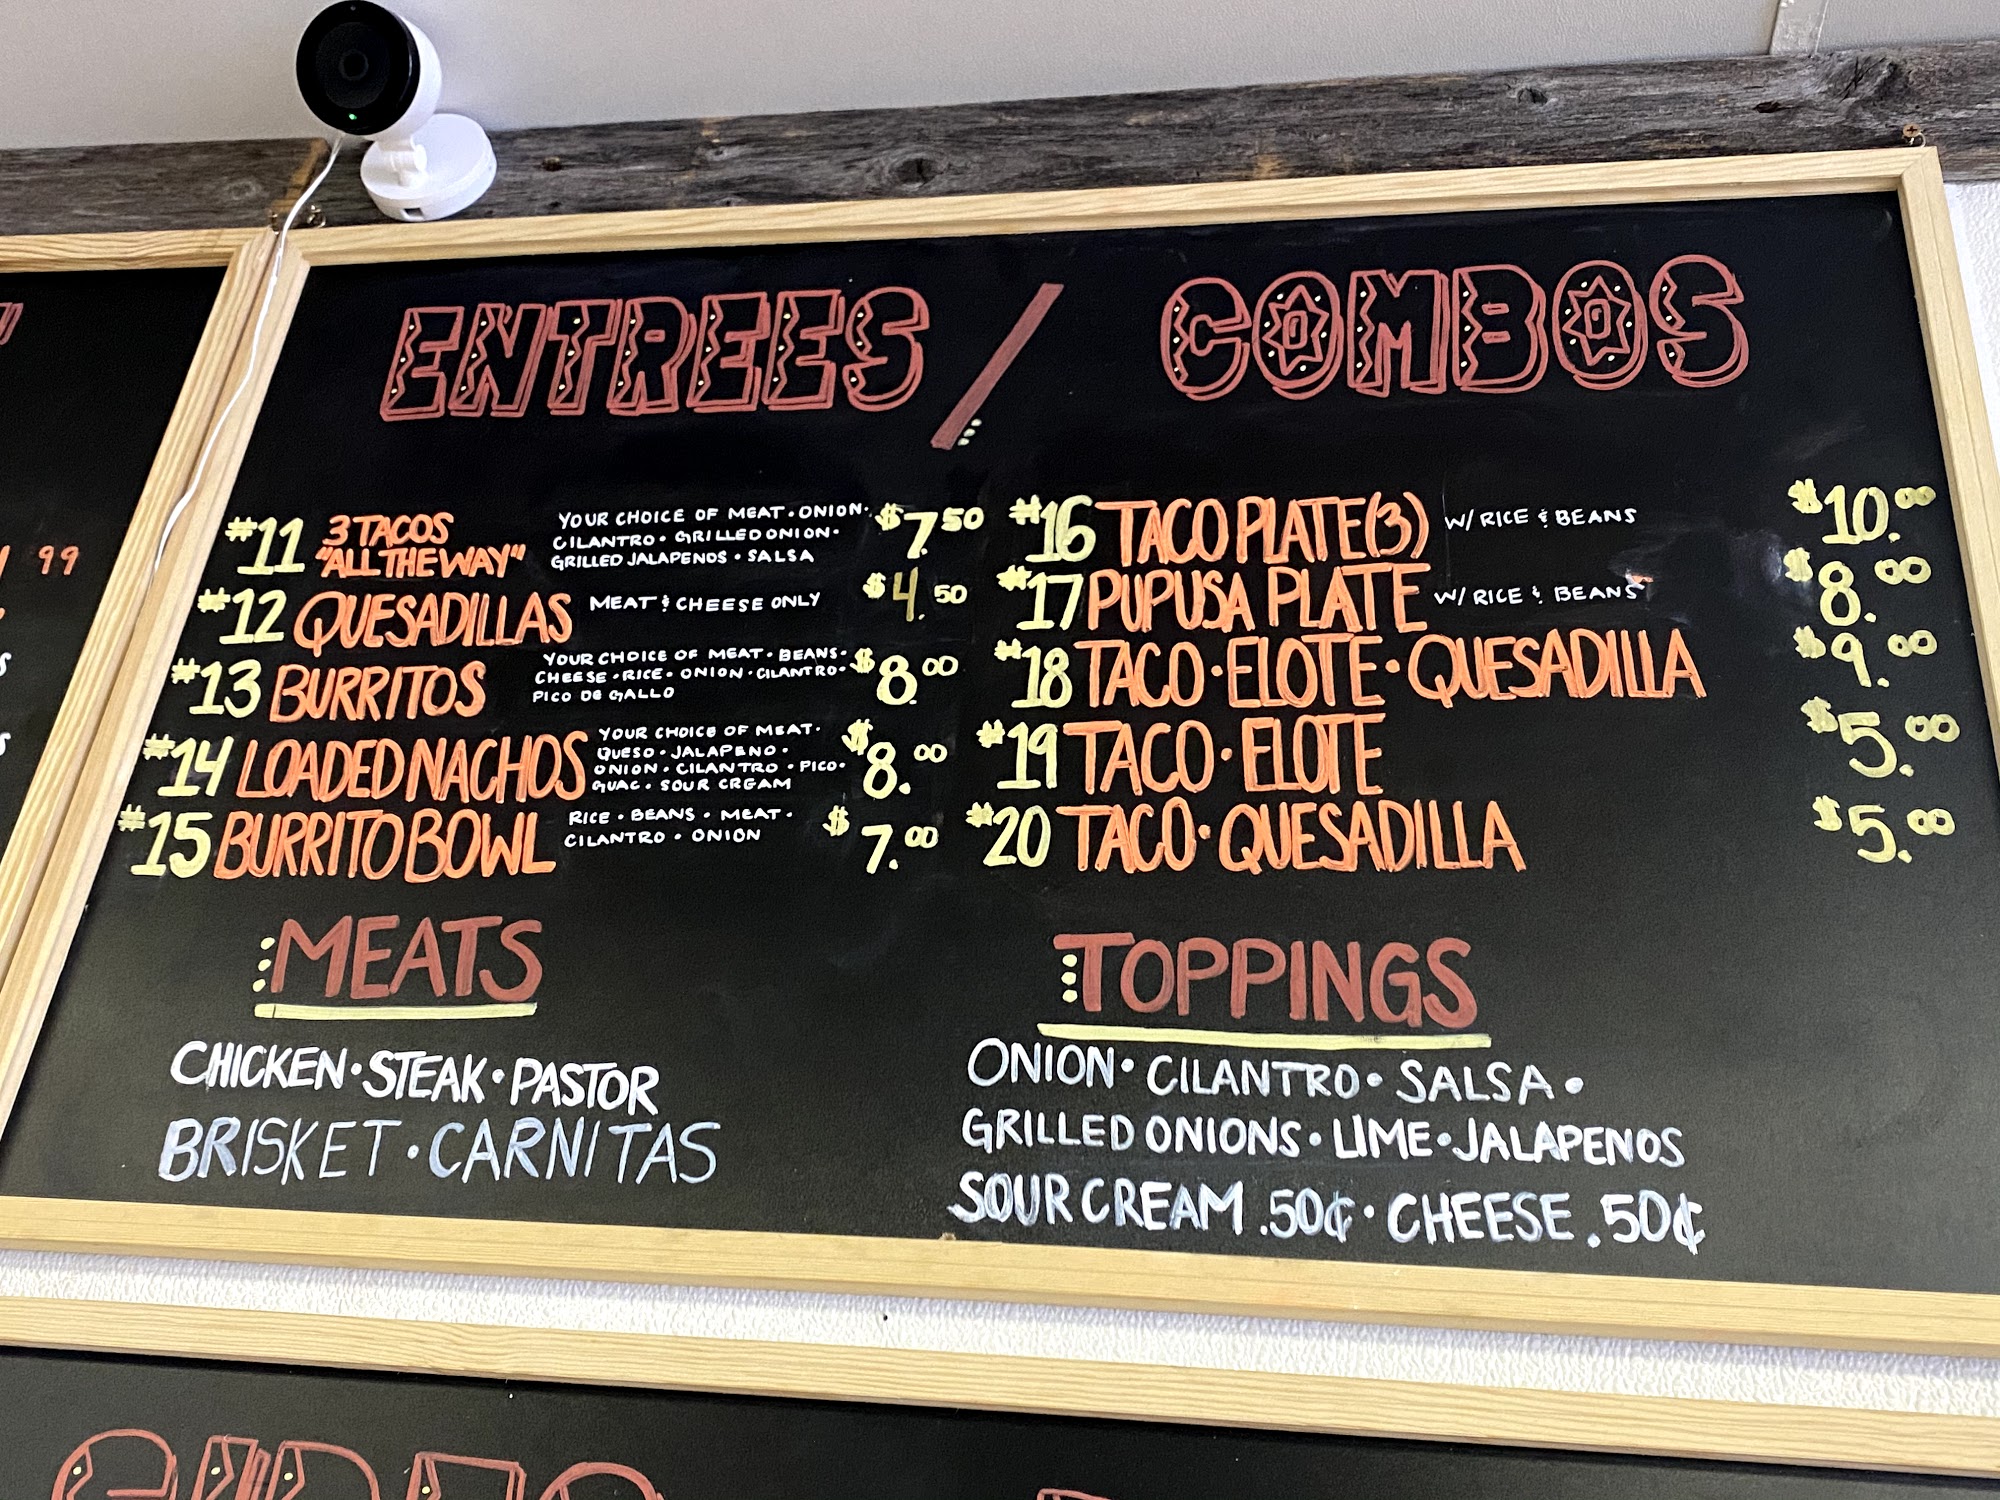 99
ENTREES / COMBOS
#11 3 TACOS "ALL THE WAY" YOUR CHOICE OF MEAT · ONION · $7.50
CILANTRO · GRILLED ONION ·
GRILLED JALAPENOS · SALSA
#12 QUESADILLAS MEAT & CHEESE ONLY $4.50
#13 BURRITOS YOUR CHOICE OF MEAT · BEANS · $8.00
CHEESE · RICE · ONION · CILANTRO ·
PICO DE GALLO
#14 LOADED NACHOS YOUR CHOICE OF MEAT · $8.00
QUESO · JALAPENO ·
ONION · CILANTRO · PICO ·
GUAC · SOUR CREAM
#15 BURRITO BOWL RICE · BEANS · MEAT · $7.00
CILANTRO · ONION
#16 TACO PLATE (3) W/ RICE & BEANS $10.00
#17 PUPUSA PLATE W/ RICE & BEANS $8.00
#18 TACO · ELOTE · QUESADILLA $9.00
#19 TACO · ELOTE $5.00
#20 TACO · QUESADILLA $5.00
MEATS
CHICKEN · STEAK · PASTOR
BRISKET · CARNITAS
TOPPINGS
ONION · CILANTRO · SALSA ·
GRILLED ONIONS · LIME · JALAPENOS
SOUR CREAM .50¢ · CHEESE .50¢